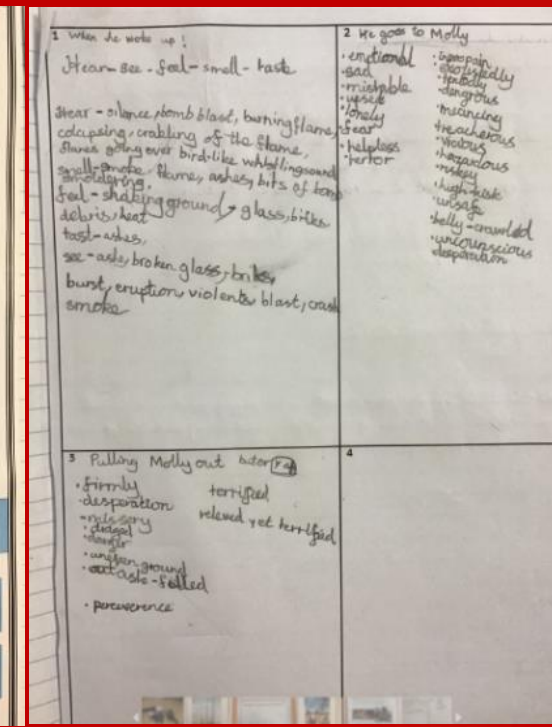 1 When he woke up!
Hear - see - feel - smell - taste
Hear - silance, bomb blast, burning flame,
colapsing, crakling of the flame,
flares going over bird-like whistling sound
smell - smoke, flame, ashes, bits of bomb
smoldering.
feel - shaking ground, glass, briks
debris, heat
tast - ashes,
see - ashe, broken glass, briks,
burst, eruption, violent blast, crash
smoke
2 He goes to Molly
• emotional
• sad
• mistable
• upset
• lonely
• fear
• helpless
• terror
• in pain
• exostedly
• dengrous
• menancing
treacherous
• vicious
• hazadous
• riskey
• high-risk
• unsafe
• belly-crawled
• uncounscious
desperation
3 Pulling Molly out
• firmly
• desperation
• missery
• draged
• danger
• uneven ground
• ashe-filled
• perceverence
terrified
releved yet terrifid
4